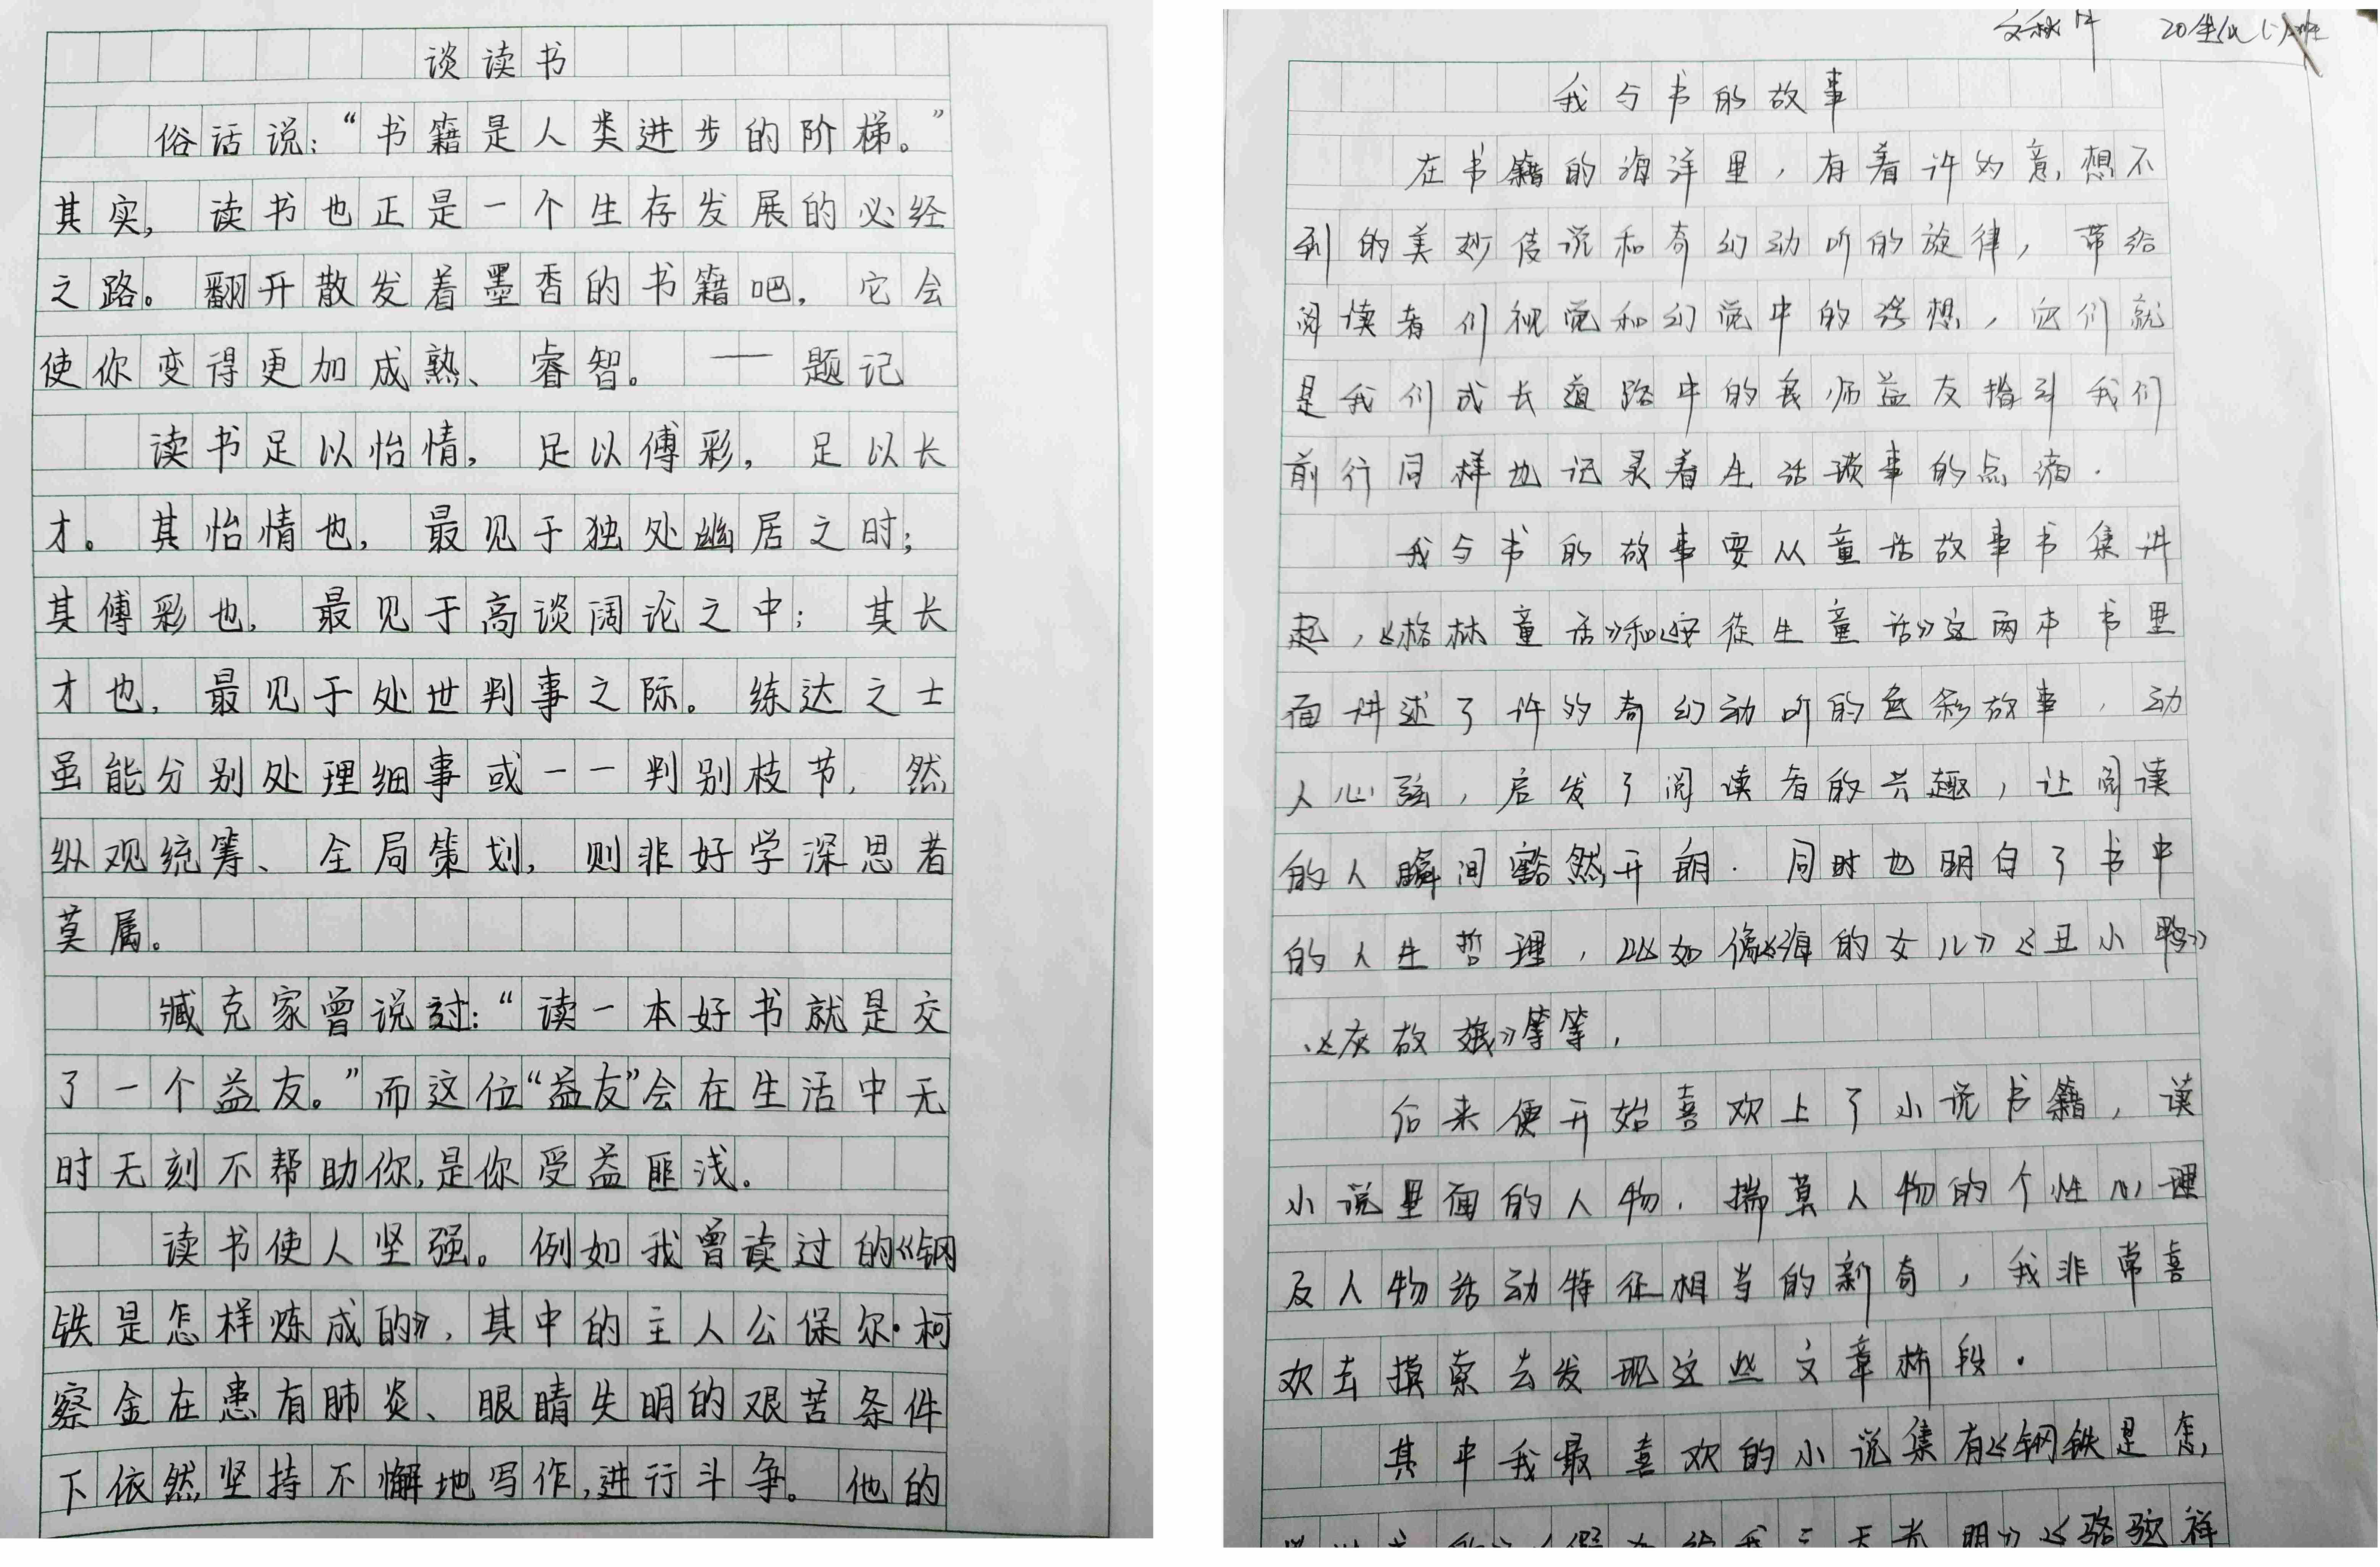 谈读书
俗话说：“书籍是人类进步的阶梯。”
其实，读书也正是一个生存发展的必经
之路。翻开散发着墨香的书籍吧，它会
使你变得更加成熟、睿智。——题记
读书足以怡情，足以傅彩，足以长
才。其怡情也，最见于独处幽居之时；
其傅彩也，最见于高谈阔论之中；其长
才也，最见于处世判事之际。练达之士
虽能分别处理细事或一一判别枝节，然
纵观统筹、全局策划，则非好学深思者
莫属。
臧克家曾说过：“读一本好书就是交
了一个益友。”而这位“益友”会在生活中无
时无刻不帮助你，是你受益匪浅。
读书使人坚强。例如我曾读过的《钢
铁是怎样炼成的》，其中的主人公保尔·柯
察金在患有肺炎、眼睛失明的艰苦条件
下依然坚持不懈地写作，进行斗争。他的
我与书的故事
在书籍的海洋里，有着许多意想不
到的美妙传说和奇幻动听的旋律，带给
阅读者们视觉和幻觉中的遐想，它们就
是我们成长道路中的良师益友指引我们
前行同样也记录着生活琐事的点滴．
我与书的故事要从童话故事书集讲
起，《格林童话》和《安徒生童话》这两本书里
面讲述了许多奇幻动听的色彩故事，动
人心弦，启发了阅读者的兴趣，让阅读
的人瞬间豁然开朗．同时也明白了书中
的人生哲理，比如像《海的女儿》《丑小鸭》
、《灰故娘》等等，
后来便开始喜欢上了小说书籍，读
小说里面的人物．揣莫人物的个性心理
及人物活动特征相当的新奇，我非常喜
欢去摸索去发现这些文章桥段．
其中我最喜欢的小说集有《钢铁是怎
《假如给我三天光明》《骆驼祥